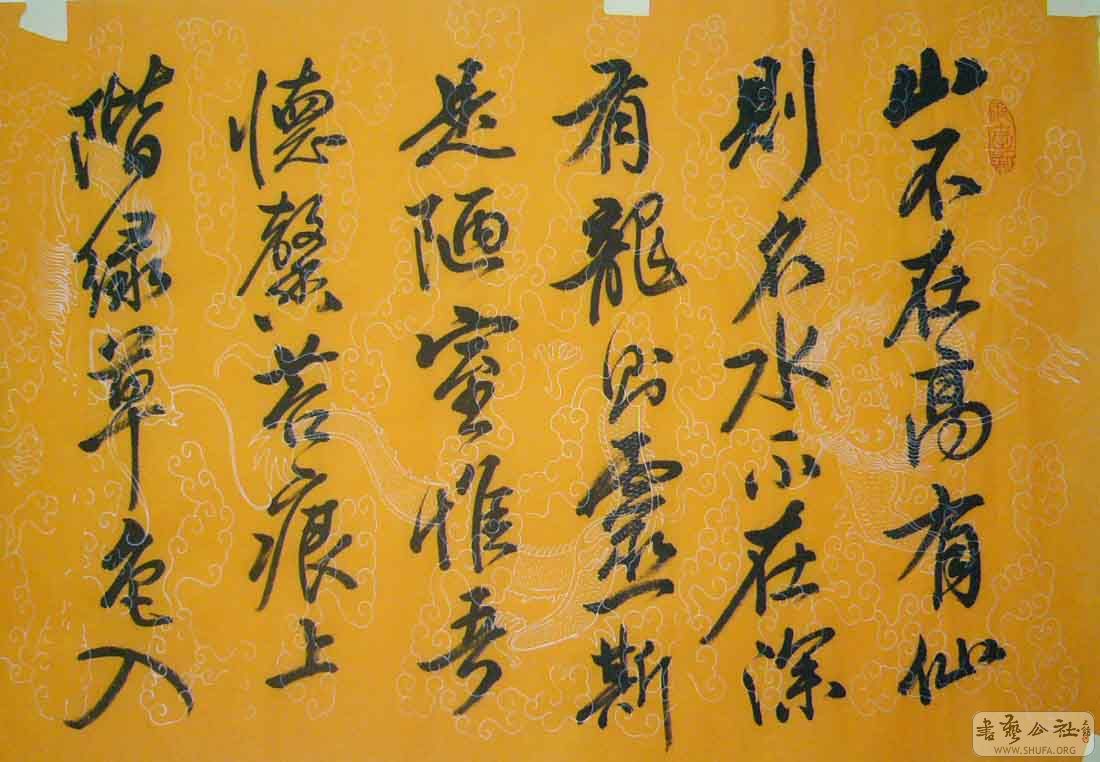 山不在高有仙
則名水不在深
有龍則靈斯
是陋室惟吾
德馨苔痕上
階緑草色入
書藝公社
WWW.SHUFA.ORG